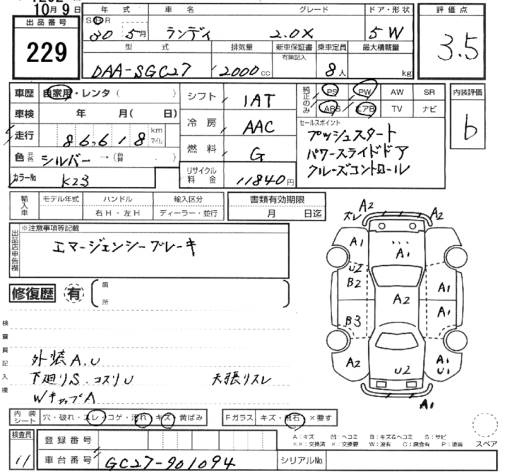 10月9日
出品番号
229
年式 車名 グレード ドア・形状
S H R 30 5月 ランディ 2.0X 5W
型式 排気量 新車保証書 有・記入 乗車定員 最大積載量
DAA-SGC27 2000cc 8人 kg
評価点
3.5
車歴 自家用・レンタ( )
車検 年 月( 日)
走行 86,618 km
色 シルバー→( )
カラーNo K23
シフト 1AT
冷房 AAC
燃料 G
リサイクル料金 11840円
純正のみ PS PW AW SR
ABS エアB TV ナビ
セールスポイント
プッシュスタート
パワースライドドア
クルーズコントロール
内装評価
b
輸入車 モデル年式 ハンドル 輸入区分
年 右H・左H ディーラー・並行
書類有効期限
月 日迄
出品店申告欄 ※注意事項等記載
エマージェンシーブレーキ
修復歴 有 箇所
検査員記入欄
外装A.U
下廻りS.コスリU 天張りスレ
WキップA
A2
スレ A2
A1 A1 A1
U2
B2 A2 A1
B3
A2 U2 A1 U1
A2 A1
内装シート 穴・破れ・スレ・コゲ・汚れ・キズ・黄ばみ
Fガラス キズ・飛石・×要す
A:キズ U:ヘコミ B:キズ&ヘコミ S:サビ
スペア
検査員 11
登録番号
車台番号 GC27-901094 シリアルNo